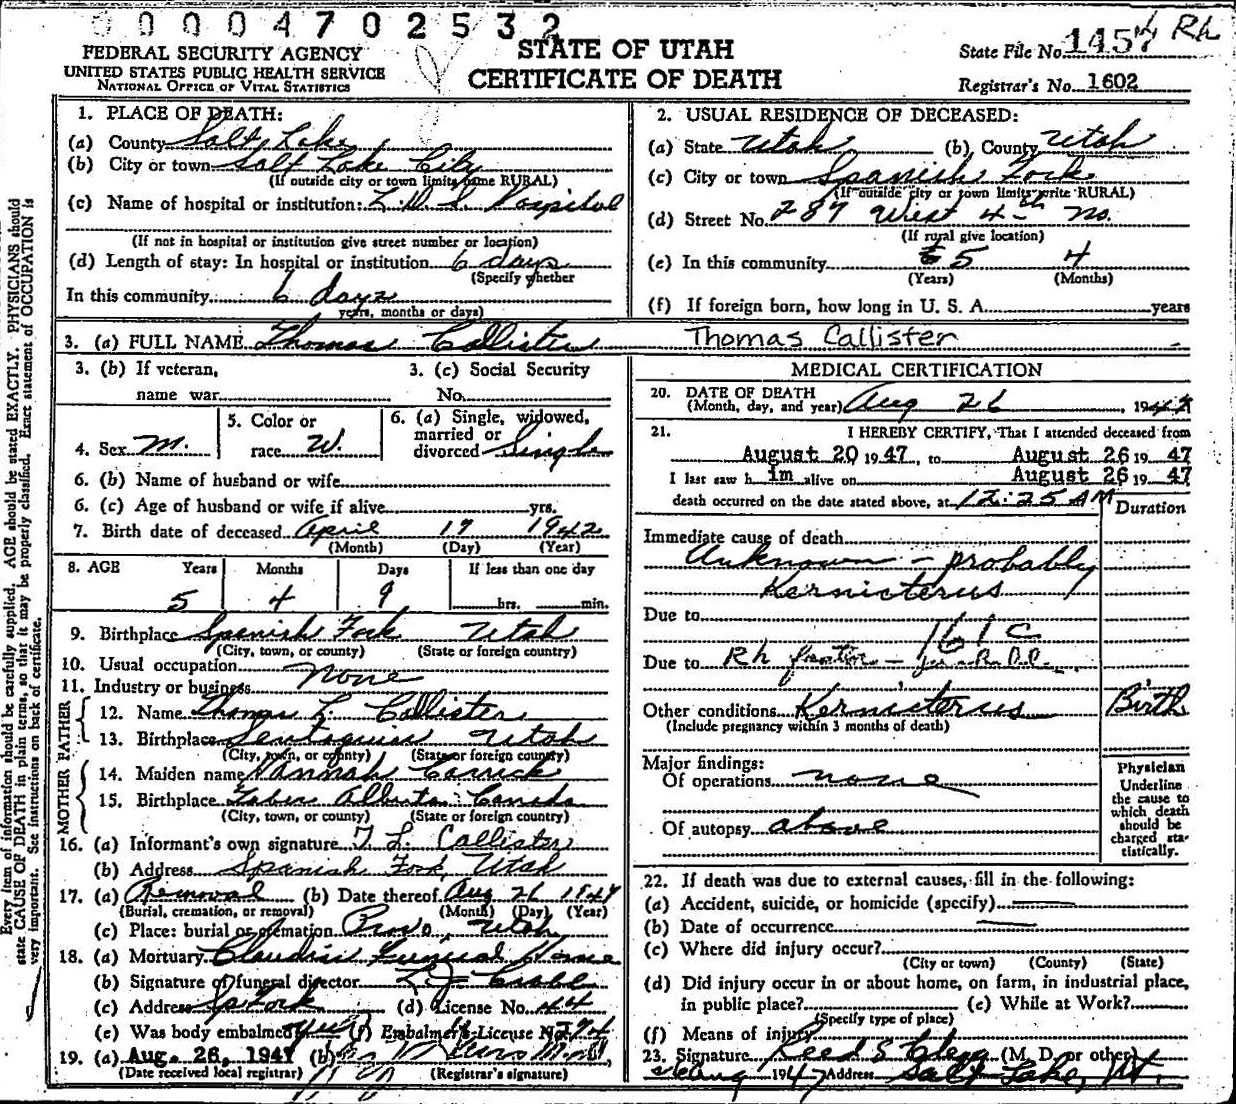 00004702532
FEDERAL SECURITY AGENCY
UNITED STATES PUBLIC HEALTH SERVICE
NATIONAL OFFICE OF VITAL STATISTICS
STATE OF UTAH
CERTIFICATE OF DEATH
State File No. 1457 Rh
Registrar's No. 1602
Every item of information should be carefully supplied. AGE should be stated EXACTLY. PHYSICIANS should
state CAUSE OF DEATH in plain terms, so that it may be properly classified. Exact statement of OCCUPATION is
very important. See instructions on back of certificate.
1. PLACE OF DEATH:
(a) County Salt Lake
(b) City or town Salt Lake City
(If outside city or town limits write RURAL)
(c) Name of hospital or institution: L.D.S. Hospital
(If not in hospital or institution give street number or location)
(d) Length of stay: In hospital or institution 6 days
(Specify whether
In this community 6 days
years, months or days)
2. USUAL RESIDENCE OF DECEASED:
(a) State Utah (b) County Utah
(c) City or town Spanish Fork
(If outside city or town limits write RURAL)
(d) Street No. 287 West 4th No.
(If rural give location)
(e) In this community 5 4
(Years) (Months)
(f) If foreign born, how long in U. S. A. years
3. (a) FULL NAME Thomas Callister Thomas Callister
3. (b) If veteran, name war
3. (c) Social Security No.
4. Sex M.
5. Color or race W.
6. (a) Single, widowed, married or divorced Single
6. (b) Name of husband or wife
6. (c) Age of husband or wife if alive yrs.
7. Birth date of deceased April 17 1942
(Month) (Day) (Year)
8. AGE Years Months Days If less than one day
5 4 9 hrs. min.
9. Birthplace Spanish Fork Utah
(City, town, or county) (State or foreign country)
10. Usual occupation none
11. Industry or business
FATHER
12. Name Thomas L. Callister
13. Birthplace Utah
(City, town, or county) (State or foreign country)
MOTHER
14. Maiden name Hannah Carrick
15. Birthplace Taber Alberta Canada
(City, town, or county) (State or foreign country)
16. (a) Informant's own signature T. L. Callister
(b) Address Spanish Fork, Utah
17. (a) Removal (b) Date thereof Aug 26 1947
(Burial, cremation, or removal) (Month) (Day) (Year)
(c) Place: burial or cremation Provo, Utah
18. (a) Mortuary Claudin Funeral Home
(b) Signature of funeral director
(c) Address Sp Fork (d) License No. 44
(e) Was body embalmed yes (f) Embalmer's License No.
19. (a) Aug. 26, 1947 (b)
(Date received local registrar) (Registrar's signature)
MEDICAL CERTIFICATION
20. DATE OF DEATH
(Month, day, and year) Aug 26, 1947
21. I HEREBY CERTIFY, That I attended deceased from
August 20 1947, to August 26 1947
I last saw h im alive on August 26 1947
death occurred on the date stated above, at 12:25 AM
Duration
Immediate cause of death
Unknown - probably
Kernicterus
Due to
161c
Due to Rh factor -
Other conditions Kernicterus Birth
(Include pregnancy within 3 months of death)
Major findings:
Of operations none
Of autopsy above
Physician
Underline
the cause to
which death
should be
charged sta-
tistically.
22. If death was due to external causes, fill in the following:
(a) Accident, suicide, or homicide (specify)
(b) Date of occurrence
(c) Where did injury occur?
(City or town) (County) (State)
(d) Did injury occur in or about home, on farm, in industrial place,
in public place? (e) While at Work?
(Specify type of place)
(f) Means of injury
23. Signature Reed S Clegg (M. D. or other)
Aug 1947 Address Salt Lake, Ut.